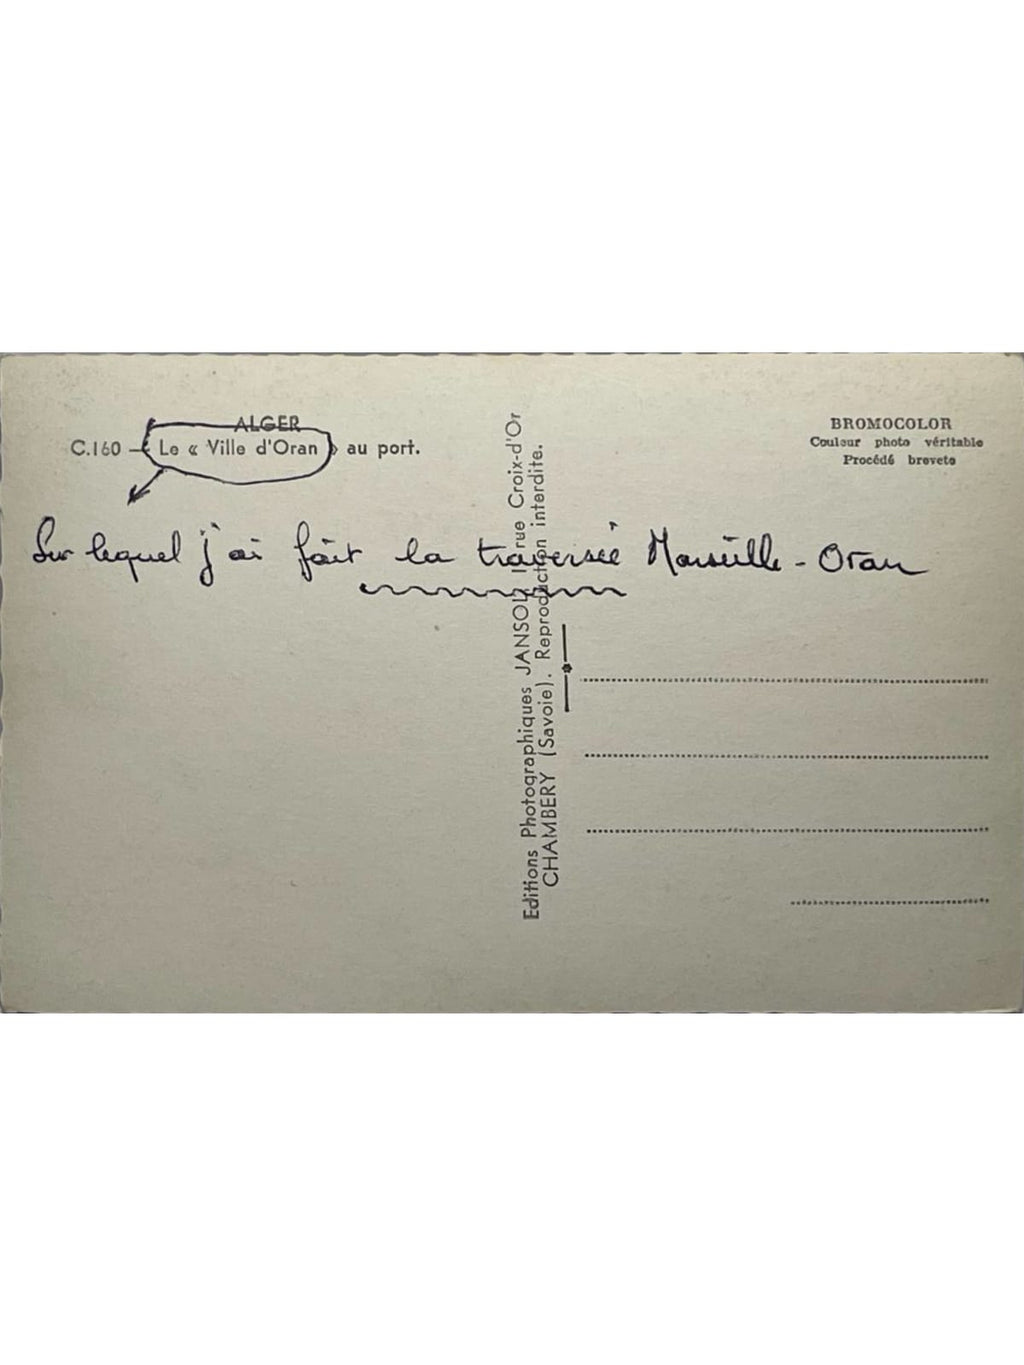 ALGER
C.160 — Le « Ville d'Oran » au port.
BROMOCOLOR
Couleur photo véritable
Procédé breveté
Sur lequel j'ai fait la traversée Marseille - Oran
Editions Photographiques JANSOL, rue Croix-d'Or
CHAMBERY (Savoie). Reproduction interdite.